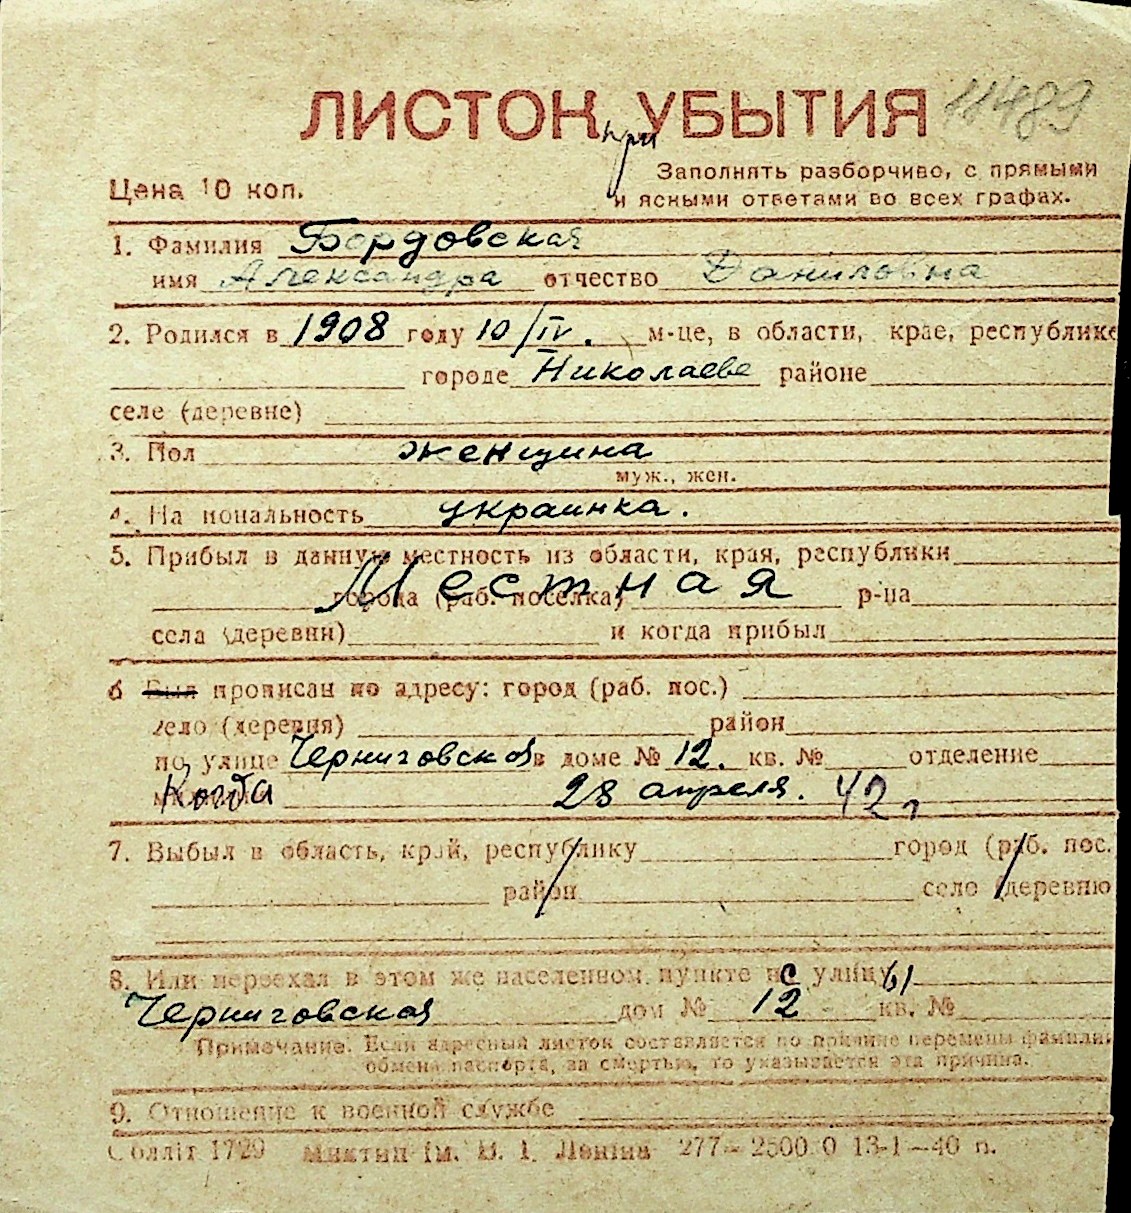 ЛИСТОК УБЫТИЯ 11489
при
Заполнять разборчиво, с прямыми
Цена 10 коп. и ясными ответами во всех графах.
1. Фамилия Бордовская
имя Александра отчество Даниловна
2. Родился в 1908 году 10/IV. м-це, в области, крае, республике
городе Николаеве районе
селе (деревне)
3. Пол женщина
муж., жен.
4. На иональность украинка.
5. Прибыл в данную местность из области, края, республики
Местная
города (раб. поселка) р-на
села (деревни) и когда прибыл
6 Был прописан по адресу: город (раб. пос.)
село (деревня) район
по улице Черниговской в доме № 12. кв. № отделение
Когда 28 апреля. 42 г
7. Выбыл в область, край, республику город (раб. пос.
район село (деревню
8. Или переехал в этом же населенном пункте с улицы
Черниговская дом № 12 кв. №
Примечание. Если адресный листок составляется по причине перемены фамилии
обмена паспорта, за смертью, то указывается эта причина.
9. Отношение к военной службе
Солліт 1729 ім. В. І. Леніна 277—2500 0 13-1—40 п.